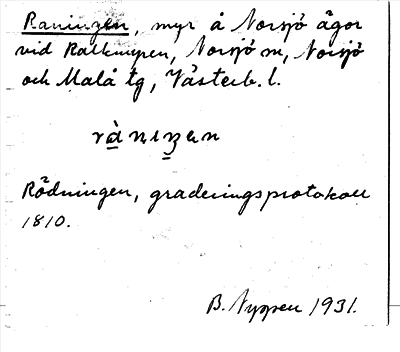 Raningen, myr å Norsjö ägor
vid Kalkmyren, Norsjö sn, Norsjö
och Malå tg, Västerb. l.
Rödningen, graderingsprotokoll
1810.
B. Nygren 1931.